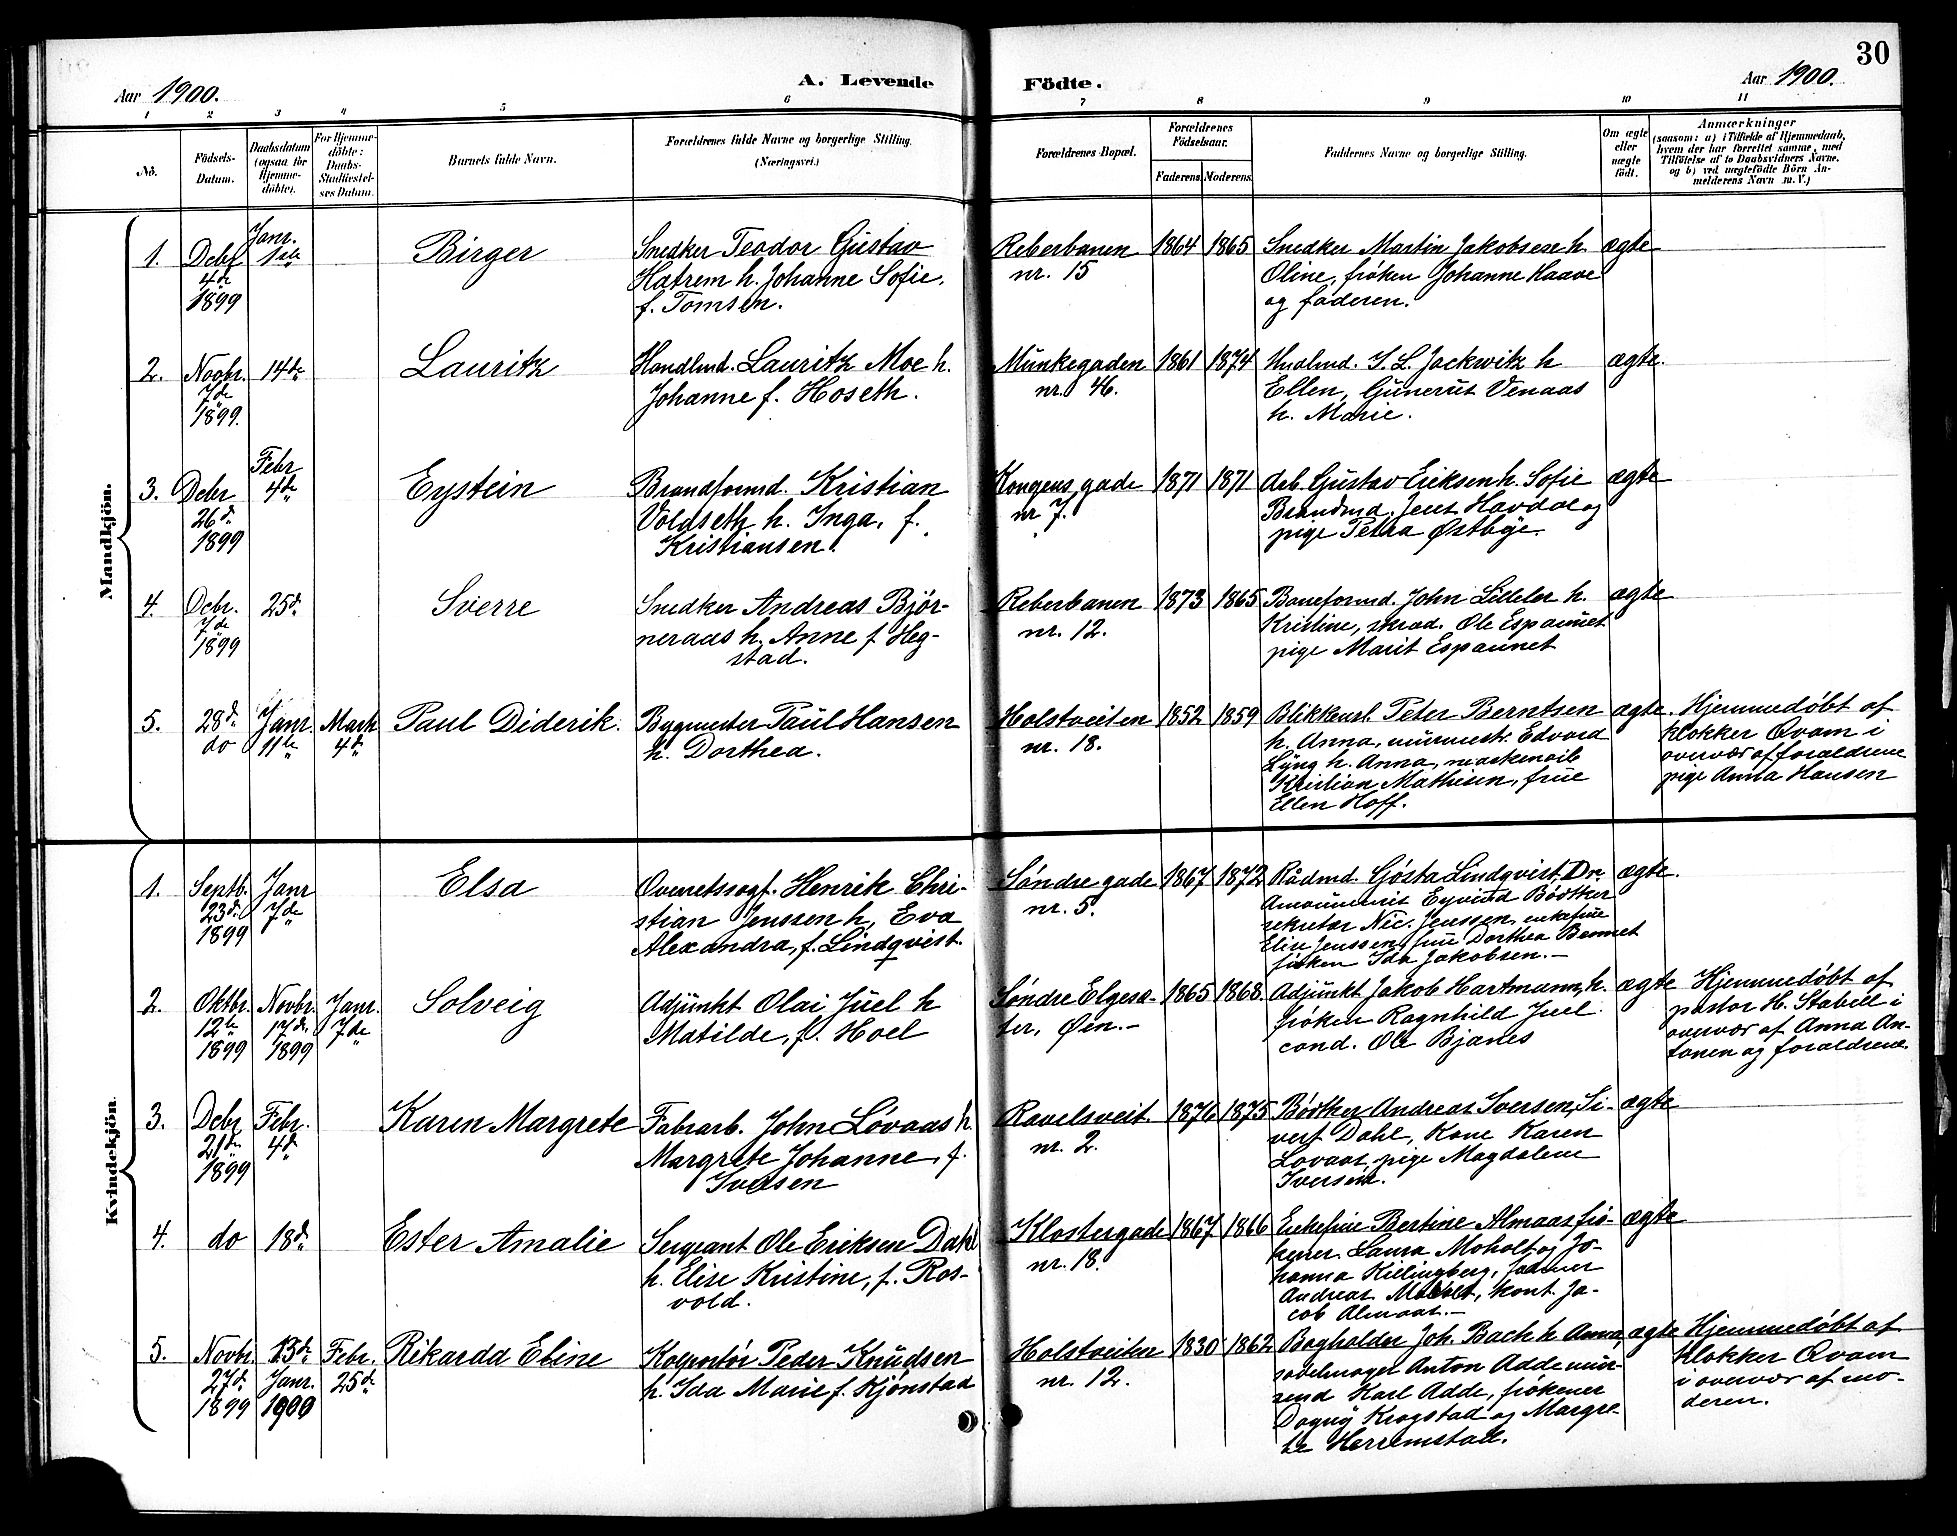 30
Aar 1900.
A. Levende Födte.
Aar 1900.
1 2 3 4 5 6 7 8 9 10 11
No.
Födsels-Datum.
Daabsdatum (ogsaa for Hjemme-döbte).
For Hjemme-döbte: Daabs-Stadfæstel-ses Datum.
Barnets fulde Navn.
Forældrenes fulde Navne og borgerlige Stilling.
(Næringsvei.)
Forældrenes Bopæl.
Forældrenes Födselsaar.
Faderens. Moderens.
Faddernes Navne og borgerlige Stilling.
Om ægte eller uægte födt.
Anmærkninger
(saasom: a) i Tilfælde af Hjemmedaab,
hvem der har forrettet samme, med
Tilföielse af to Daabsvidners Navne,
og b) ved uægtefödte Börn An-
melderens Navn m. V.)
Mandkjön.
1. Debr 4de 1899 Janr. 1ste Birger
Snedker Teodor Gustav
Hatrem h. Johanne Sofie,
f. Tomsen.
Reberbanen
nr. 15
1864 1865
Snedker Martin Jakobsen h.
Oline, frøken Johanne Haave
og faderen.
ægte
2. Novbr. 7de 1899. 14de Lauritz
Handlmd. Lauritz Moe h.
Johanne f. Hoseth.
Munkegaden
nr. 46.
1861 1874
J. L. Jackwitz h
Ellen, Gunerius Venaas
h. Marie.
ægte.
3. Debr 26d. 1899 Febr 4de Eystein
Brandformd. Kristian
Voldseth h. Inga, f.
Kristiansen.
Kongens gade
nr 7.
1871 1871
Arb. Gustav Eriksen h. Sofie
Brandmd. Jens Havdal og
pige Petra Østbye.
ægte
4. Debr. 7de 1899 25d. Sverre
Snedker Andreas Bjør-
neraas h. Anne f Heg-
stad.
Reberbanen
nr. 12.
1873 1865
Baneformd. John Lilleler h.
Kristine, skræd. Ole Espaunet
pige Marit Espaunet
ægte
5. 28d. do Janr. 11te Marts 4d. Paul Diderik.
Bygmester Paul Hansen
h. Dorthea.
Holstveiten
nr. 18.
1852 1859
Blikkensl. Peter Berntsen
h. Anna, murmestr. Edvard
Lyng h. Anna, maskenarb
Kristian Mathisen, frue
Ellen Hoff.
ægte.
Hjemmedøbt af
klokker Qvam i
overvær af forældrene
pige Anna Hansen
Kvindekjön.
1. Septb. 23d. 1899 Janr 7de Elsa
Overretssagf. Henrik Chri-
stian Jenssen h, Eva
Alexandra, f. Lindqvist.
Søndre gade
nr. 5.
1867 1872
Rådmd. Gjøsta Lindqvist, Dr.
Eyvind Bødtker
sekretær Nic. Jenssen, enkefrue
Elise Jenssen, frue Dorthea Bennet
frøken Ida Jakobsen.—
ægte.
2. Oktbr. 12te 1899 Novbr. 17de. 1899 Janr. 7de Solveig
Adjunkt Olai Juel h
Matilde, f. Hoel
Søndre Elgesæ-
ter, Øen.—
1865 1868.
Adjunkt Jakob Hartmann, h.
frøken Ragnhild Juel.
cand. Ole Bjanes
ægte
Hjemmedøbt af
pastor H. Stabell i
overvær af Anna An-
tonen og forældrene.
3. Debr 21d. 1899 Febr. 4d. Karen Margrete
Fabrarb. John Løvaas h
Margrete Johanne, f.
Iversen
Ravelsveit.
nr. 2.
1876 1875
Bødtker Andreas Iversen, Si-
vert Dahl, Kone Karen
Lovaas, pige Magdalene
Iversen.
ægte
4. do 18d. Ester Amalie
Sergeant Ole Eriksen Dahl
h. Elise Kristine, f. Ros-
vold.
Klostergade
nr. 18.
1867 1866
Enkefrue Bertine Almaas frø-
kener. Laura Moholt og Jo-
hanna Killingberg,
Andreas Moholt, kont. Ja-
cob Almaas.—
ægte
5. Novbr. 27d. 1899 13de Janr. 1900 Febr. 25d. Rikarda Eline
Kolportør Peder Knudsen
h. Ida Marie f. Kjønstad
Holstveiten
nr. 12.
1830 1862
Bogholder Joh. Bach h Anna,
sadelmager Anton Adde mur-
svend Karl Adde, frøkener
Dagny Krogstad og Margre-
te Herremstad.
ægte
Hjemmedøbt af
klokker Qvam
i overvær af mo-
deren.